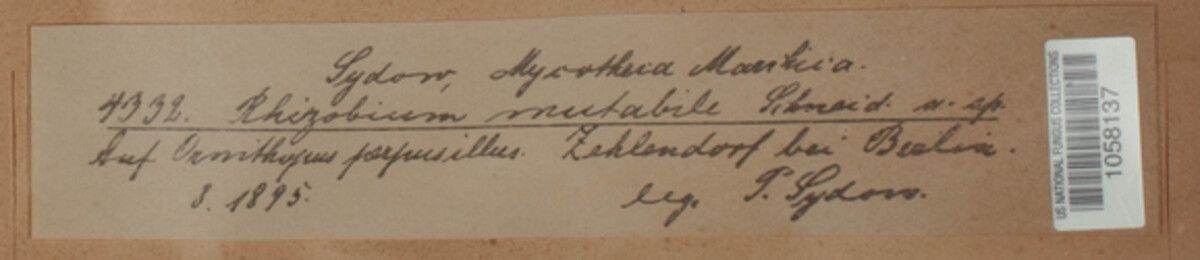 Sydow, Mycotheca Marchica.
4332. Rhizobium mutabile Schneid. n. sp.
Auf Ornithopus perpusillus. Zehlendorf bei Berlin.
8. 1895. leg. P. Sydow.
US NATIONAL FUNGUS COLLECTIONS
1058137